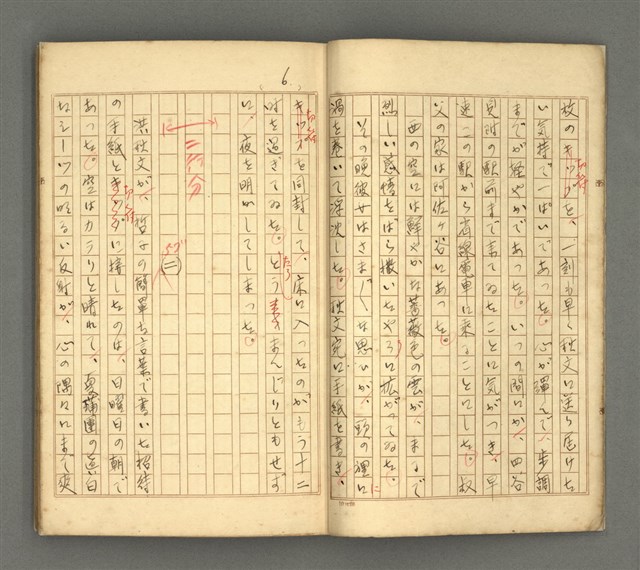 枚のキップを、一刻も早く秋文に送り届けた
切符
い気持で一ぱいであった。心が彈んで、歩調
までが軽やかであった。いつの間にか、四谷
見附の駅前まで来てゐたことに気がつき、早
速この駅から省線電車に乗ることにした。叔
父の家は阿佐ヶ谷にあった。
西の空には鮮やかな薔薇色の雲が、まるで
烈しい感情をばら撒いたやうに拡がってゐた。
その晩彼女はさまざまな思ひが、頭の裡に
渦を巻いて浮沈した。秋文宛に手紙を書き、
6
キップを同封して、床に入ったのがもう十二
切符
時を過ぎてゐた。とうとうまんじりともせず
に、夜を明かしてしまった。
二行分
(二)
洪秋文が、哲子の簡單な言葉で書いた招待
の手紙と切符に接したのは、日曜日の朝で
あった。空はカラリと晴れて、夏蒲團の真白
なシーツの明るい反射が、心の隅にまで爽